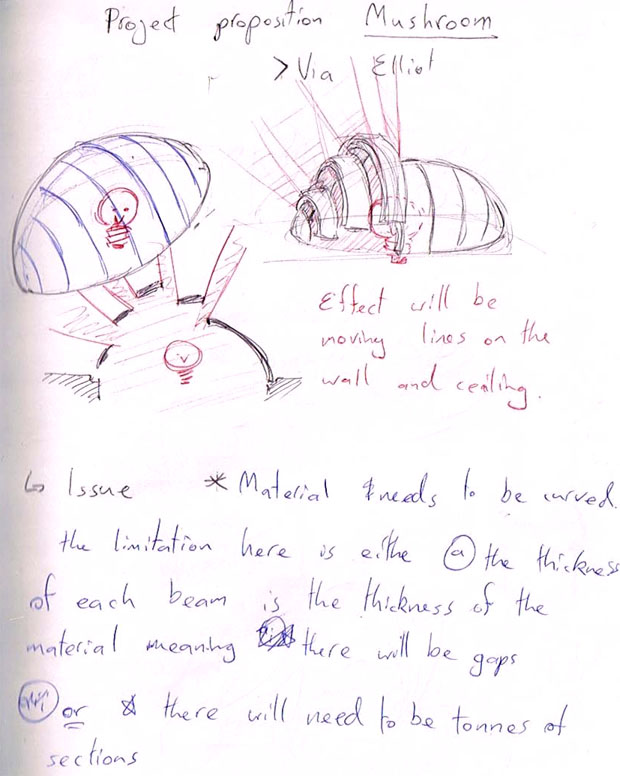 Project proposition Mushroom
> Via Elliot
Effect will be
moving lines on the
wall and ceiling.
↳ Issue * Material needs to be curved.
the limitation here is eithe (a) the thickness
of each beam is the thickness of the
material meaning there will be gaps
or there will need to be tonnes of
sections